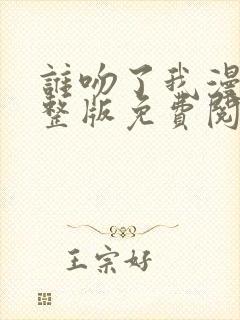 誰吻了我漫
整版免費閱
王宗好